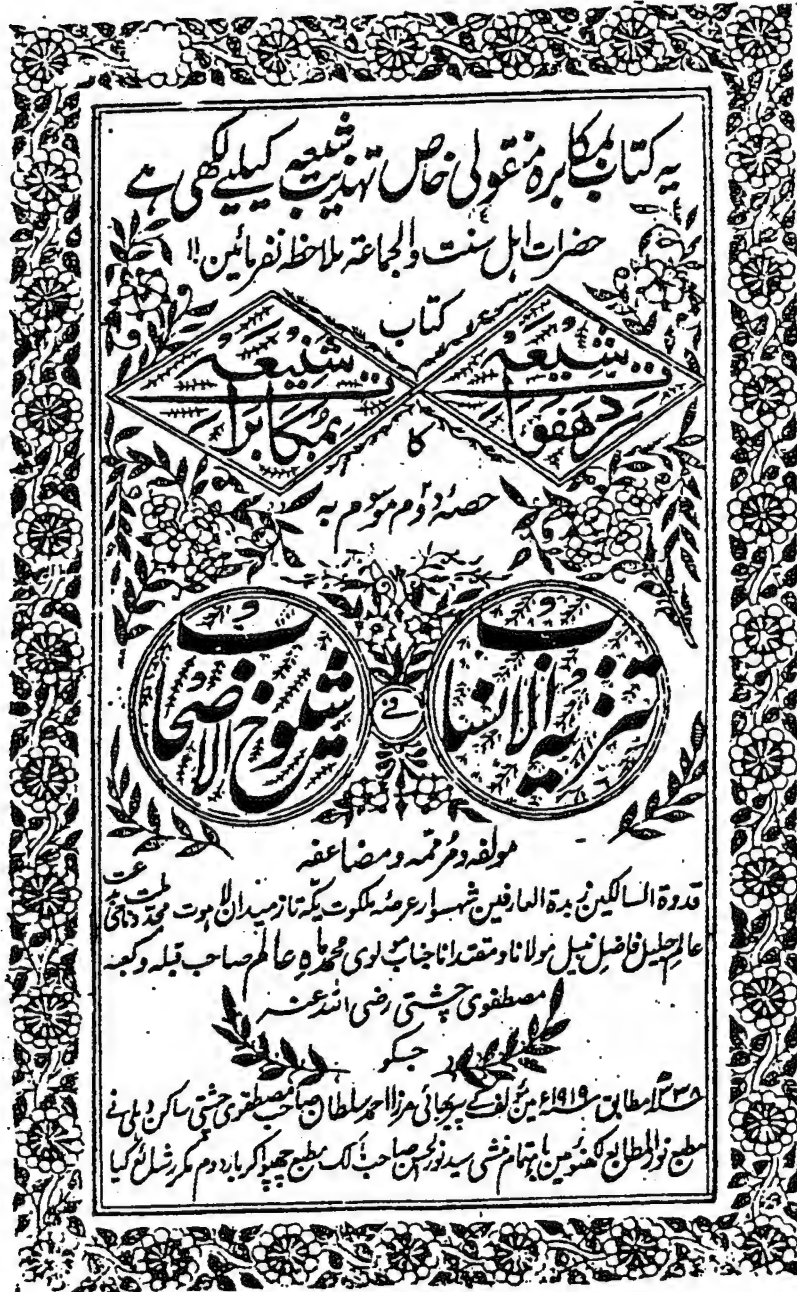 یہ کتاب بمکابرہ منقولی خاص تہذیب شیعہ کیلیے لکھی ہے
حضرات اہل سنت والجماعۃ ملاحظہ نفرمائین!!
کتاب
شیعہ
رد ھفوات
شنیعہ
بمکابرات
کا
حصۂ دوم موسوم بہ
تنزیہ الانساب
فے
شیوخ الاصحاب
مولفہ و مرممہ و مضاعفہ
قدوۃ السالکین زبدۃ العارفین شہسوار عرصۂ ملکوت یکہ تاز میدان لاہوت
عالم جلیل فاضل نبیل مولانا و مقتدانا جناب مولوی محمد ماہ عالم صاحب قبلہ و کعبہ
مصطفوی چشتی رضی اللہ عنہ
جسکو
۱۳۳۸ھ مطابق سنہ ۱۹۱۹ء مین مؤلف کے پیربھائی مرزا احمد سلطان صاحب مصطفوی چشتی ساکن دہلی نے
مطبع نور المطابع لکھنؤ مین باہتمام منشی سید نورالحسن صاحب مالک مطبع چھپوا کر بار دوم مکرر شائع کیا